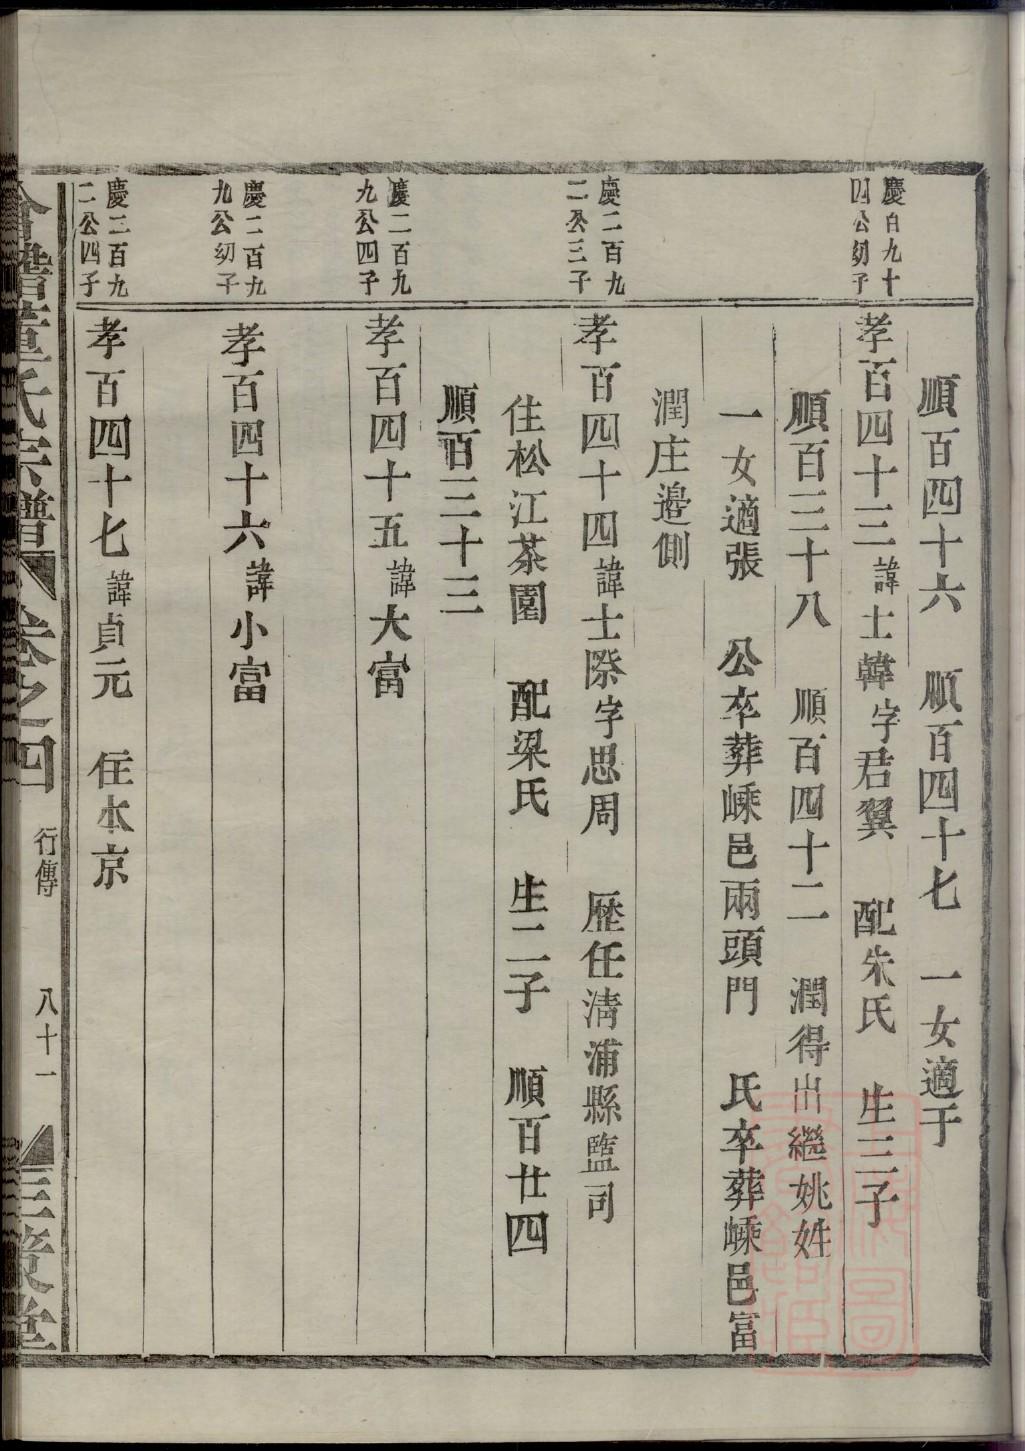 順百四十六　順百四十七　一女適于
慶百九十
四公幼子
孝百四十三諱士韓字君翼　配朱氏　生三子
順百三十八　順百四十二　潤得出繼姚姓
一女適張　公卒葬嵊邑兩頭門　氏卒葬嵊邑富
潤庄邉側
慶二百九
二公三子
孝百四十四諱士際字思周　歴任清浦縣監司
住松江茶園　配梁氏　生二子　順百廿四
順百三十三
慶二百九
九公四子
孝百四十五諱大富
慶二百九
九公幼子
孝百四十六諱小富
慶二百九
二公四子
孝百四十七諱貞元　住本京
會稽董氏宗譜　卷之四　行傳　八十一　三策堂